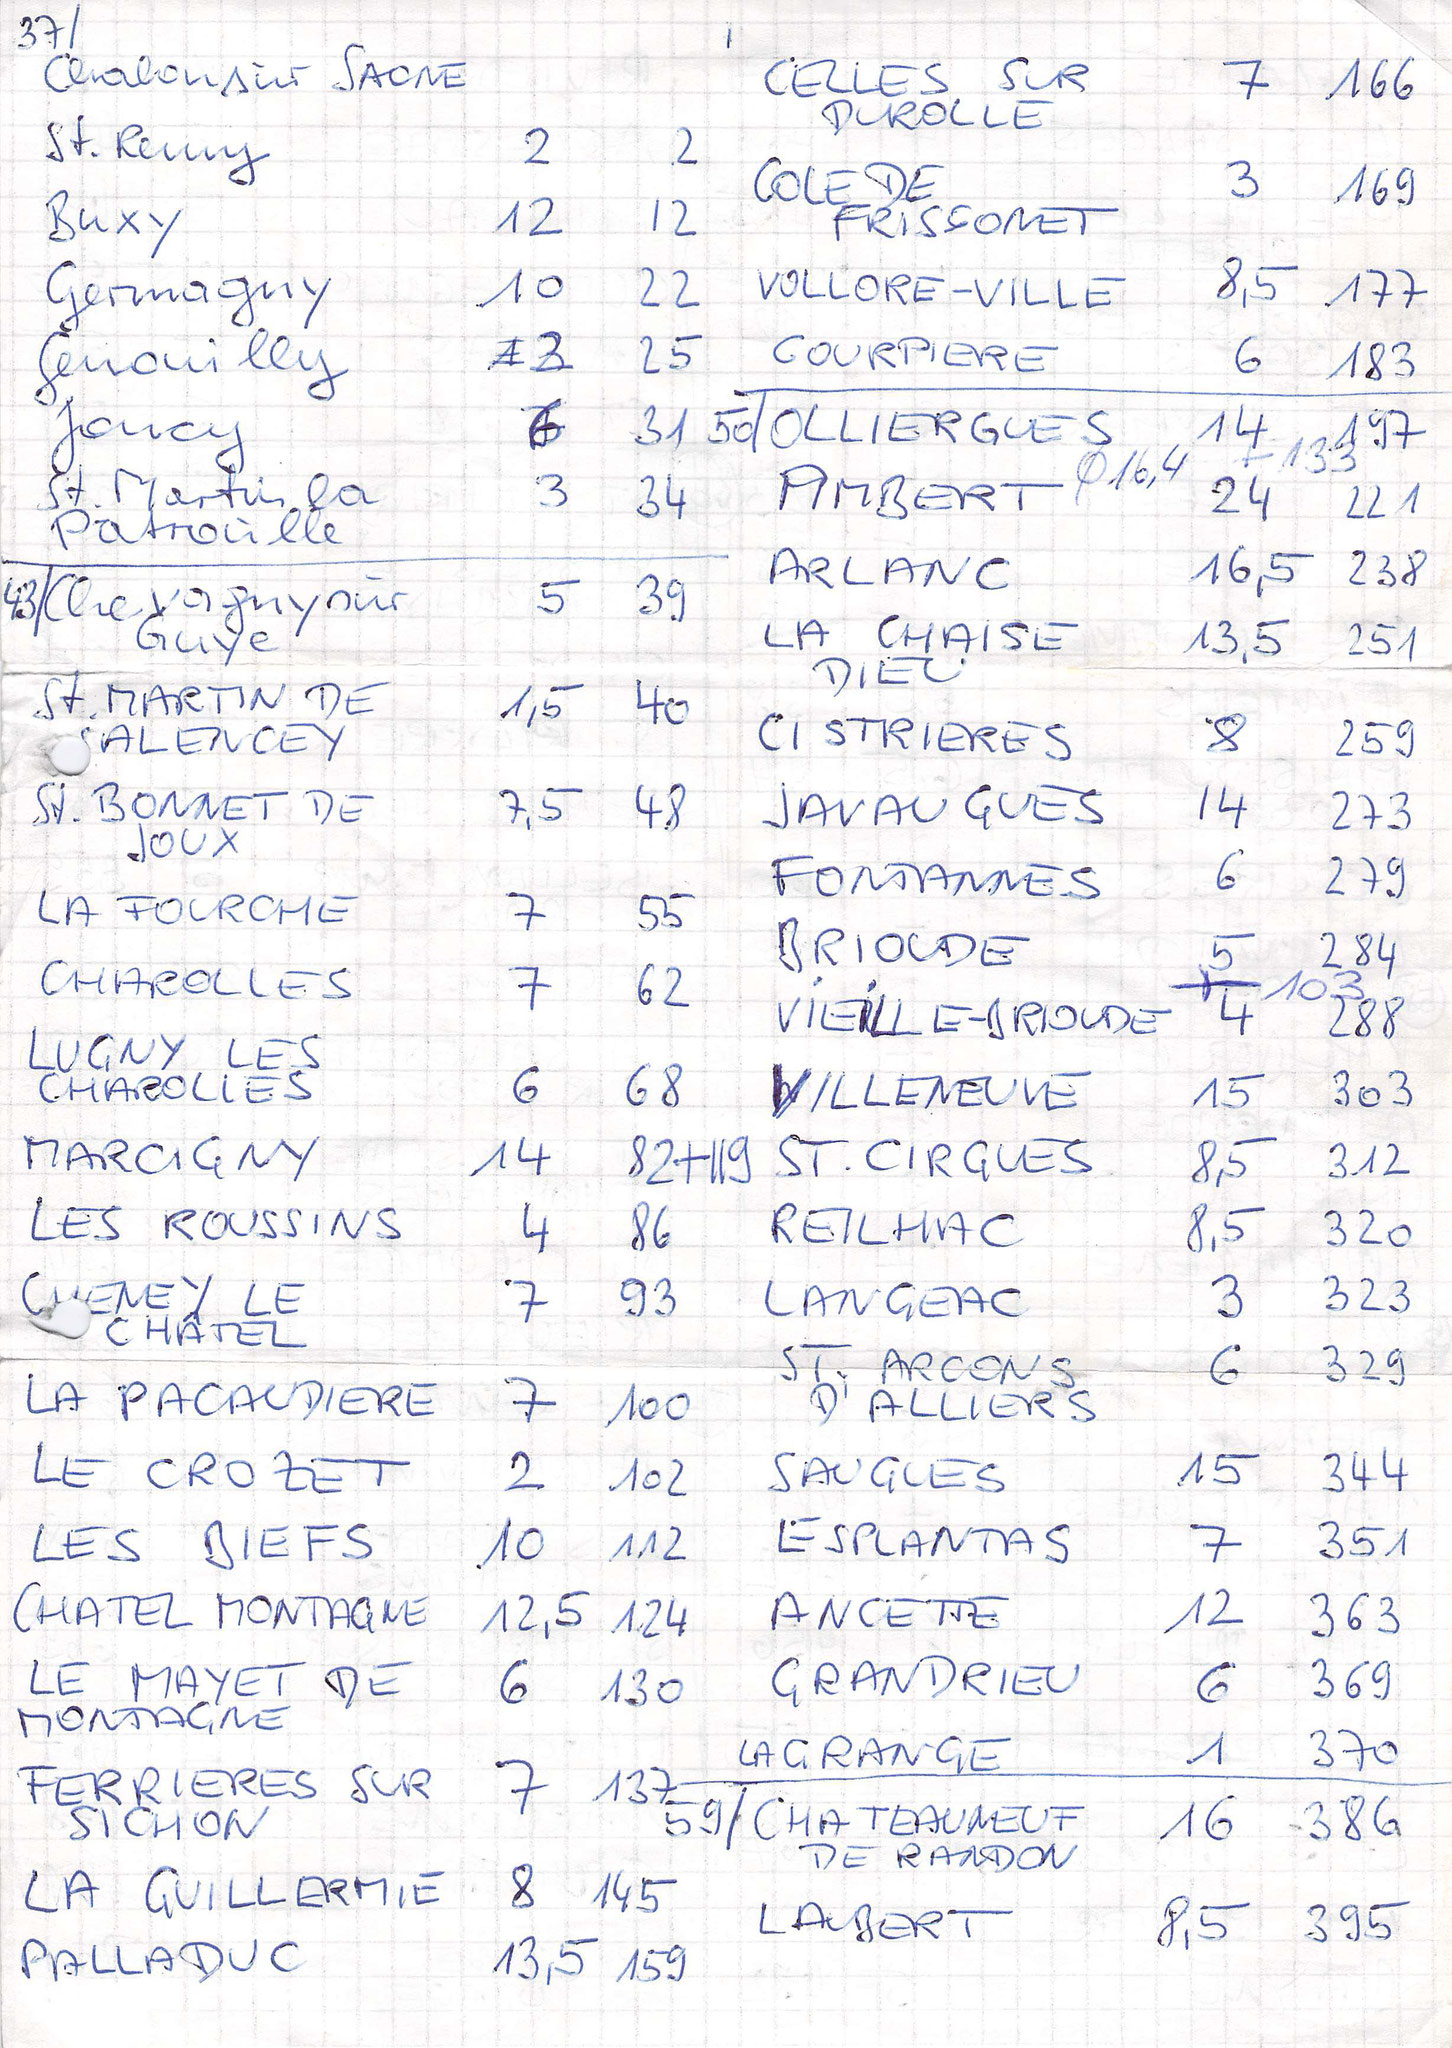 37/
Chalon sur SAONE
St. Remy 2 2
Buxy 12 12
Germagny 10 22
Genouilly 3 25
Joncy 6 31
St. Martin la 3 34
Patrouille
43/ Chevagny sur 5 39
Guye
St. MARTIN DE 1,5 40
SALENCEY
St. BONNET DE 7,5 48
JOUX
LA FOURCHE 7 55
CHAROLLES 7 62
LUGNY LES
CHAROLLES 6 68
MARCIGNY 14 82+119
LES ROUSSINS 4 86
CHENEY LE 7 93
CHÂTEL
LA PACAUDIERE 7 100
LE CROZET 2 102
LES BIEFS 10 112
CHATEL MONTAGNE 12,5 124
LE MAYET DE 6 130
MONTAGNE
FERRIERES SUR 7 137
SICHON
LA GUILLERMIE 8 145
PALLADUC 13,5 159
CELLES SUR 7 166
DUROLLE
COLE DE 3 169
FRISSONET
VOLLORE-VILLE 8,5 177
COURPIERE 6 183
50/ OLLIERGUES 14 197
Ø16,4 + 133
AMBERT 24 221
ARLANC 16,5 238
LA CHAISE 13,5 251
DIEU
CISTRIERES 8 259
JAVAUGUES 14 273
FONTANNES 6 279
BRIOUDE 5 284
+ 103
VIEILLE-BRIOUDE 4 288
VILLENEUVE 15 303
ST. CIRGUES 8,5 312
REILHAC 8,5 320
LANGEAC 3 323
ST. ARCONS 6 329
D'ALLIERS
SAUGUES 15 344
ESPLANTAS 7 351
ANCETTE 12 363
GRANDRIEU 6 369
LAGRANGE 1 370
59/ CHATEAUNEUF 16 386
DE RANDON
LAUBERT 8,5 395